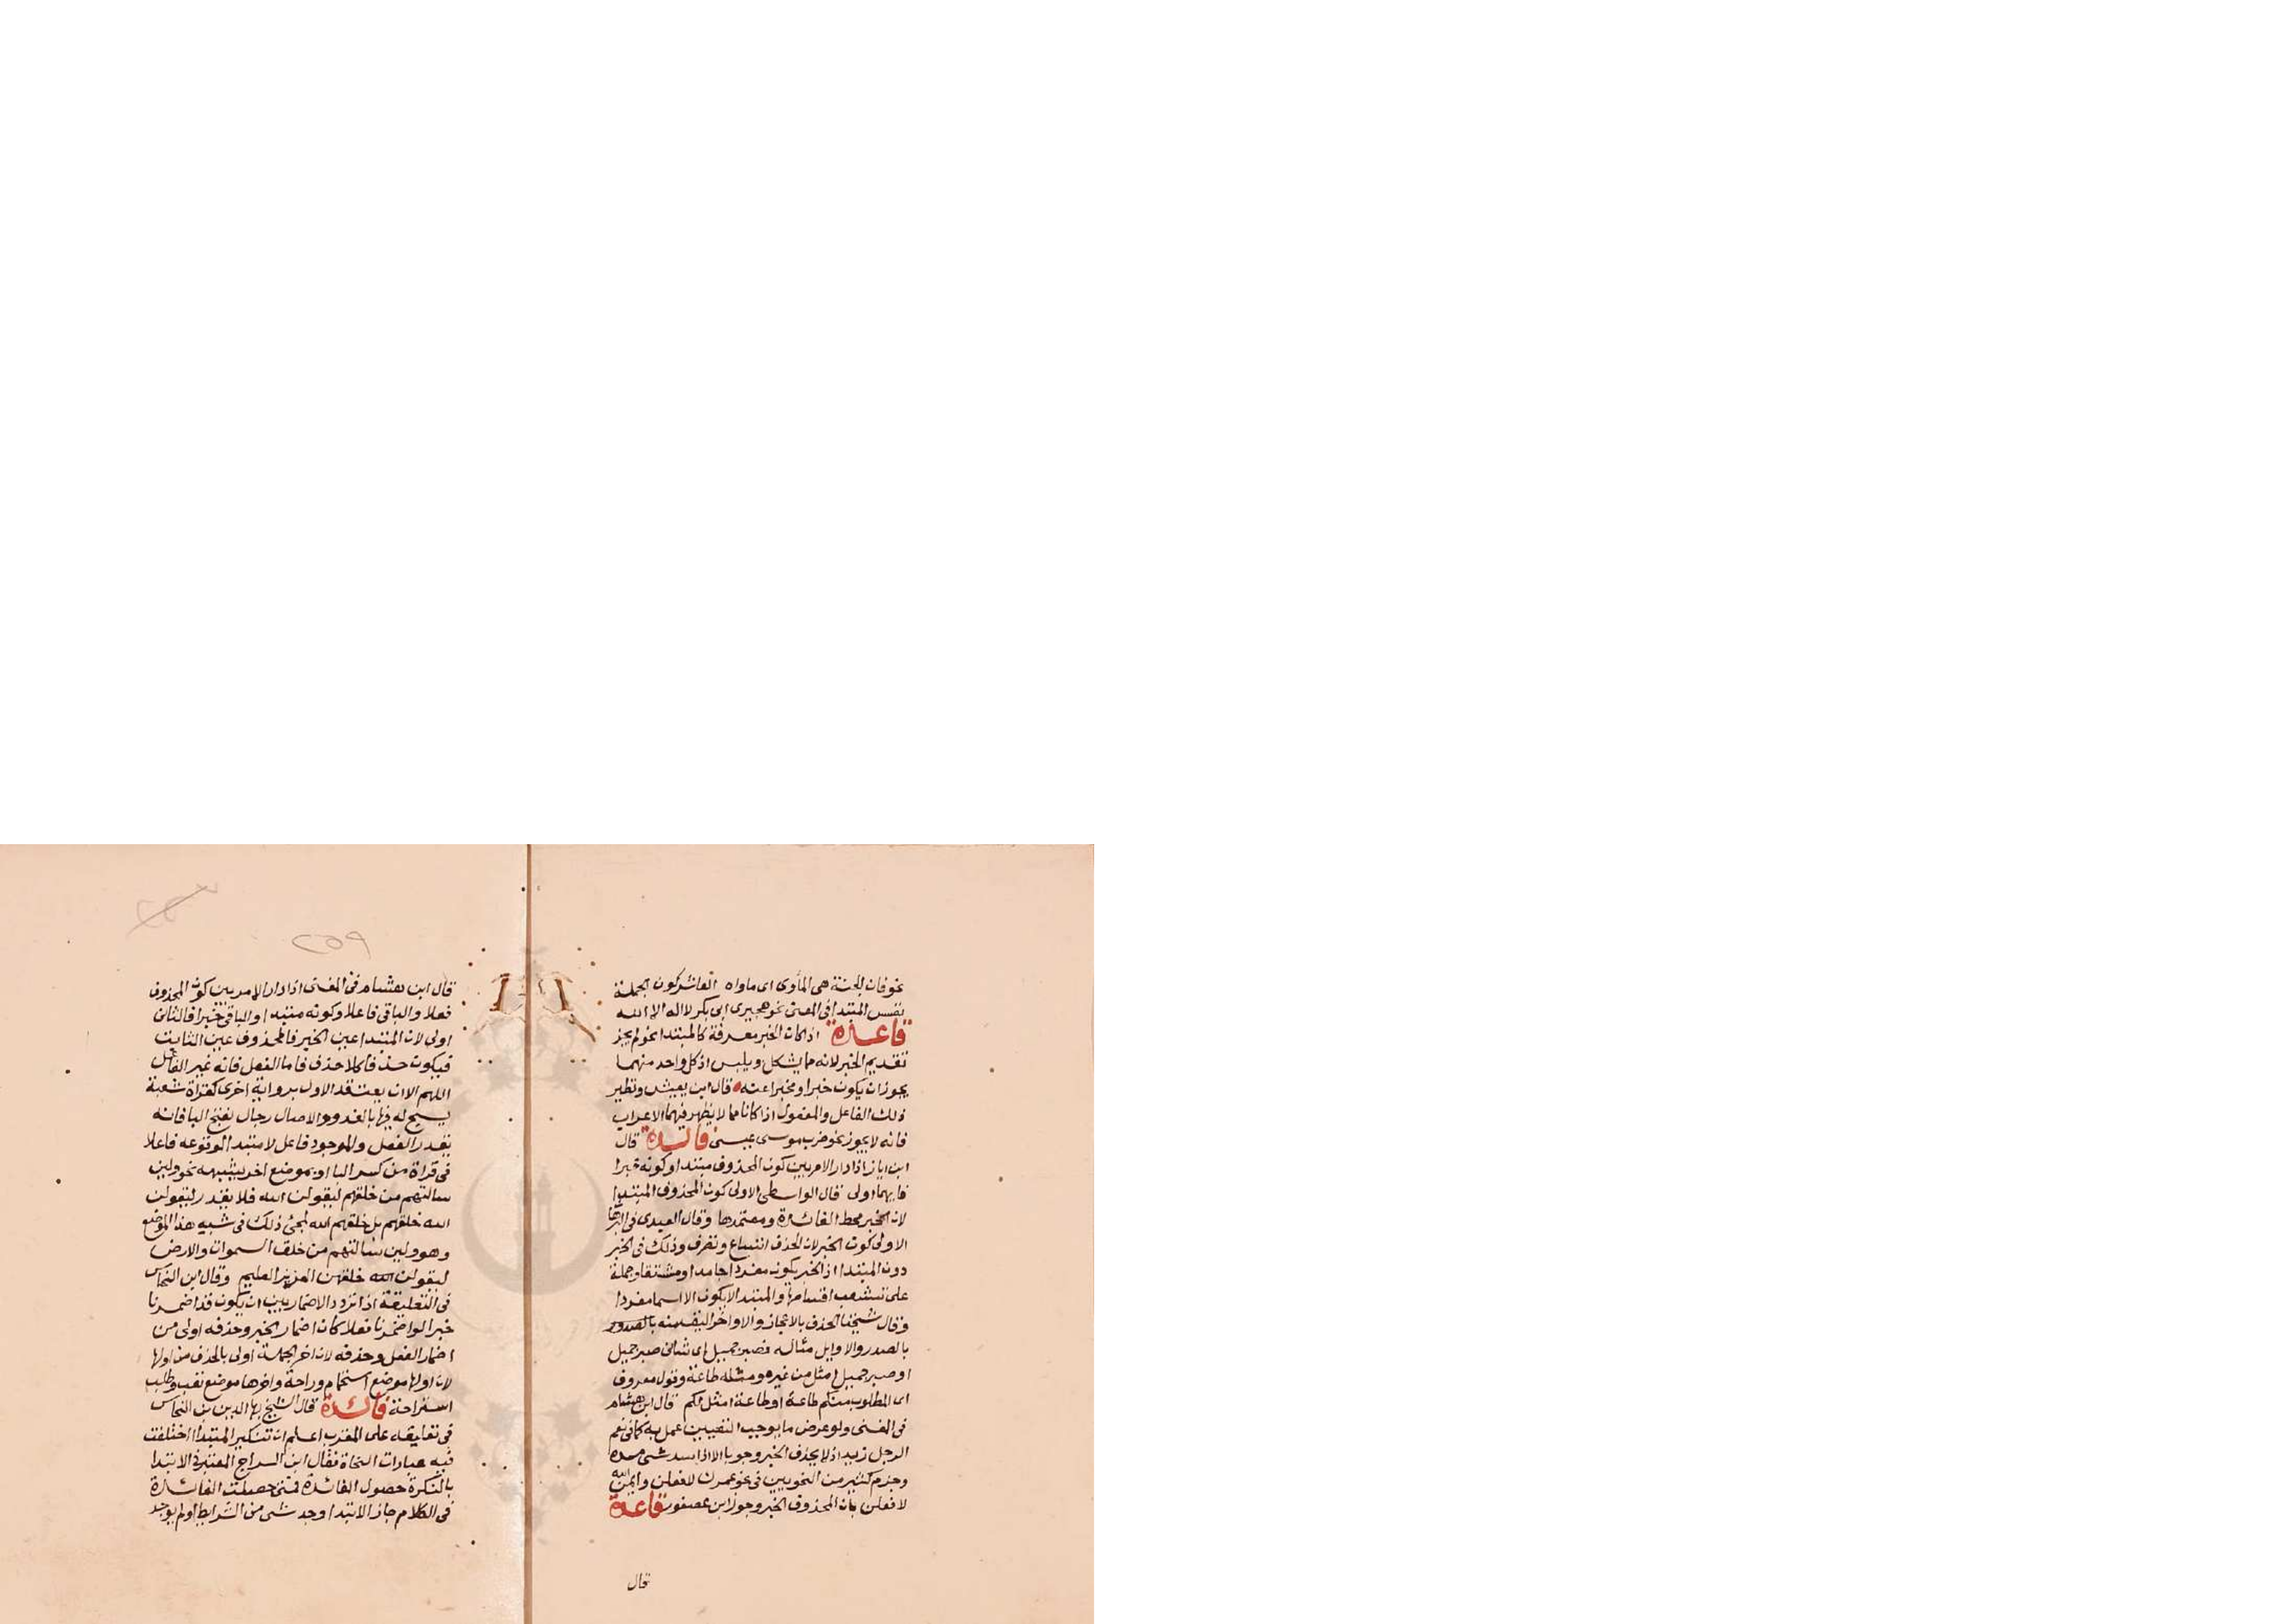 نحو فان الجنة هى المأوى اى ماواه العاشر كون الجملة
نفس المبتدا فى المعنى نحو هجيرى ابى بكر لا اله الا الله
قاعدة اذا كان الخبر معرفة كالمبتدا نحو لم يجز
تقديم الخبر لانه مما يشكل ويلبس اذ كل واحد منهما
يجوز ان يكون خبرا ومخبرا عنه قال ابن يعيش ونظير
ذلك الفاعل والمفعول اذا كانا مما لا يظهر فيهما الاعراب
فانه لا يجوز نحو ضرب موسى عيسى فائدة قال
ابن اياز اذا دار الامر بين كون المحذوف مبتدا وكونه خبرا
فايهما اولى قال الواسطى الاولى كون المحذوف المبتدا
لان الخبر محط الفائدة ومعتمدها وقال العبدى فى البرهان
الاولى كون الخبر لان الحذف اتساع وتصرف وذلك فى الخبر
دون المبتدا اذ الخبر يكون مفردا جامدا ومشتقا وجملة
على تشعب اقسامها والمبتدا لا يكون الا اسما مفردا
وقال شيخنا الحذف بالاعجاز والاواخر اليق منه بالصدور
بالصدر والاوايل مثاله فصبر جميل اى شانى صبر جميل
او صبر جميل امثل من غيره ومثله طاعة وقول معروف
اى المطلوب منكم طاعة او طاعة امثل لكم قال ابن هشام
فى المغنى ولو عرض ما يوجب التعيين عمل به كما فى نعم
الرجل زيد اذ لا يحذف الخبر وجوبا الا اذا سد شى مسده
وجزم كثير من النحويين فى نحو عمرك لافعلن وايمن الله
لافعلن بان المحذوف الخبر وجوز ابن عصفور قاعدة
قال
259
قال ابن هشام فى المغنى اذا دار الامر بين كون المحذوف
فعلا والباقى فاعلا وكونه مبتدا والباقى خبرا فالثانى
اولى لان المبتدا عين الخبر فالمحذوف عين الثابت
فيكون حذفا كلا حذف فاما الفعل فانه غير الفاعل
اللهم الا ان يعتقد الاول برواية اخرى كقراة شعبة
يسبح له فيها بالغدو والاصال رجال بفتح البا فانه
يقدر الفعل والموجود فاعل لا مبتدا لوقوعه فاعلا
فى قراة من كسر البا او بموضع اخر يشبهه نحو ولين
سالتهم من خلقهم ليقولن الله فلا يقدر ليقولن
الله خلقهم بل خلقهم الله لمجى ذلك فى شبه هذا الموضع
وهو ولين سالتهم من خلق السموات والارض
ليقولن الله خلقهن العزيز العليم وقال ابن النحاس
فى التعليقة اذا تردد الاضمار بين ان يكون قد اضمرنا
خبرا او اضمرنا فعلا كان اضمار الخبر وحذفه اولى من
اضمار الفعل وحذفه لان اخر الجملة اولى بالحذف من اولها
لان اولها موضع استجمام وراحة واخرها موضع تعب وطلب
استراحة فائدة قال الشيخ بها الدين بن النحاس
فى تعليقه على المقرب اعلم ان تنكير المبتدا اختلفت
فيه عبارات النحاة فقال ابن السراج المعتبر فى الابتدا
بالنكرة حصول الفائدة فمتى حصلت الفائدة
فى الكلام جاز الابتدا وجد شى من الشرايط او لم يوجد